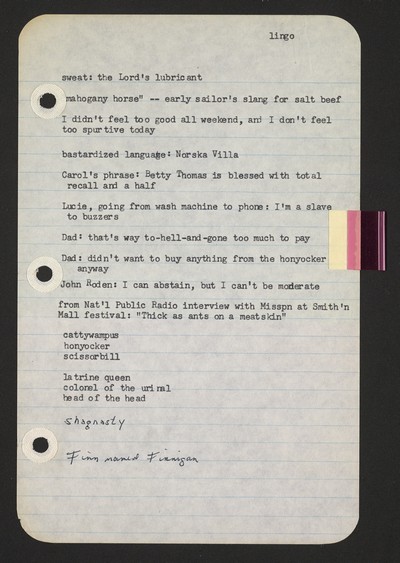 lingo
sweat: the Lord's lubricant
mahogany horse" -- early sailor's slang for salt beef
I didn't feel too good all weekend, and I don't feel
too spurtive today
bastardized language: Norska Villa
Carol's phrase: Betty Thomas is blessed with total
recall and a half
Lucie, going from wash machine to phone: I'm a slave
to buzzers
Dad: that's way to-hell-and-gone too much to pay
Dad: didn't want to buy anything from the honyocker
anyway
John Roden: I can abstain, but I can't be moderate
from Nat'l Public Radio interview with Misspn at Smith'n
Mall festival: "Thick as ants on a meatskin"
cattywampus
honyocker
scissorbill
latrine queen
colonel of the urinal
head of the head
shagnasty
Finn named Finnigan